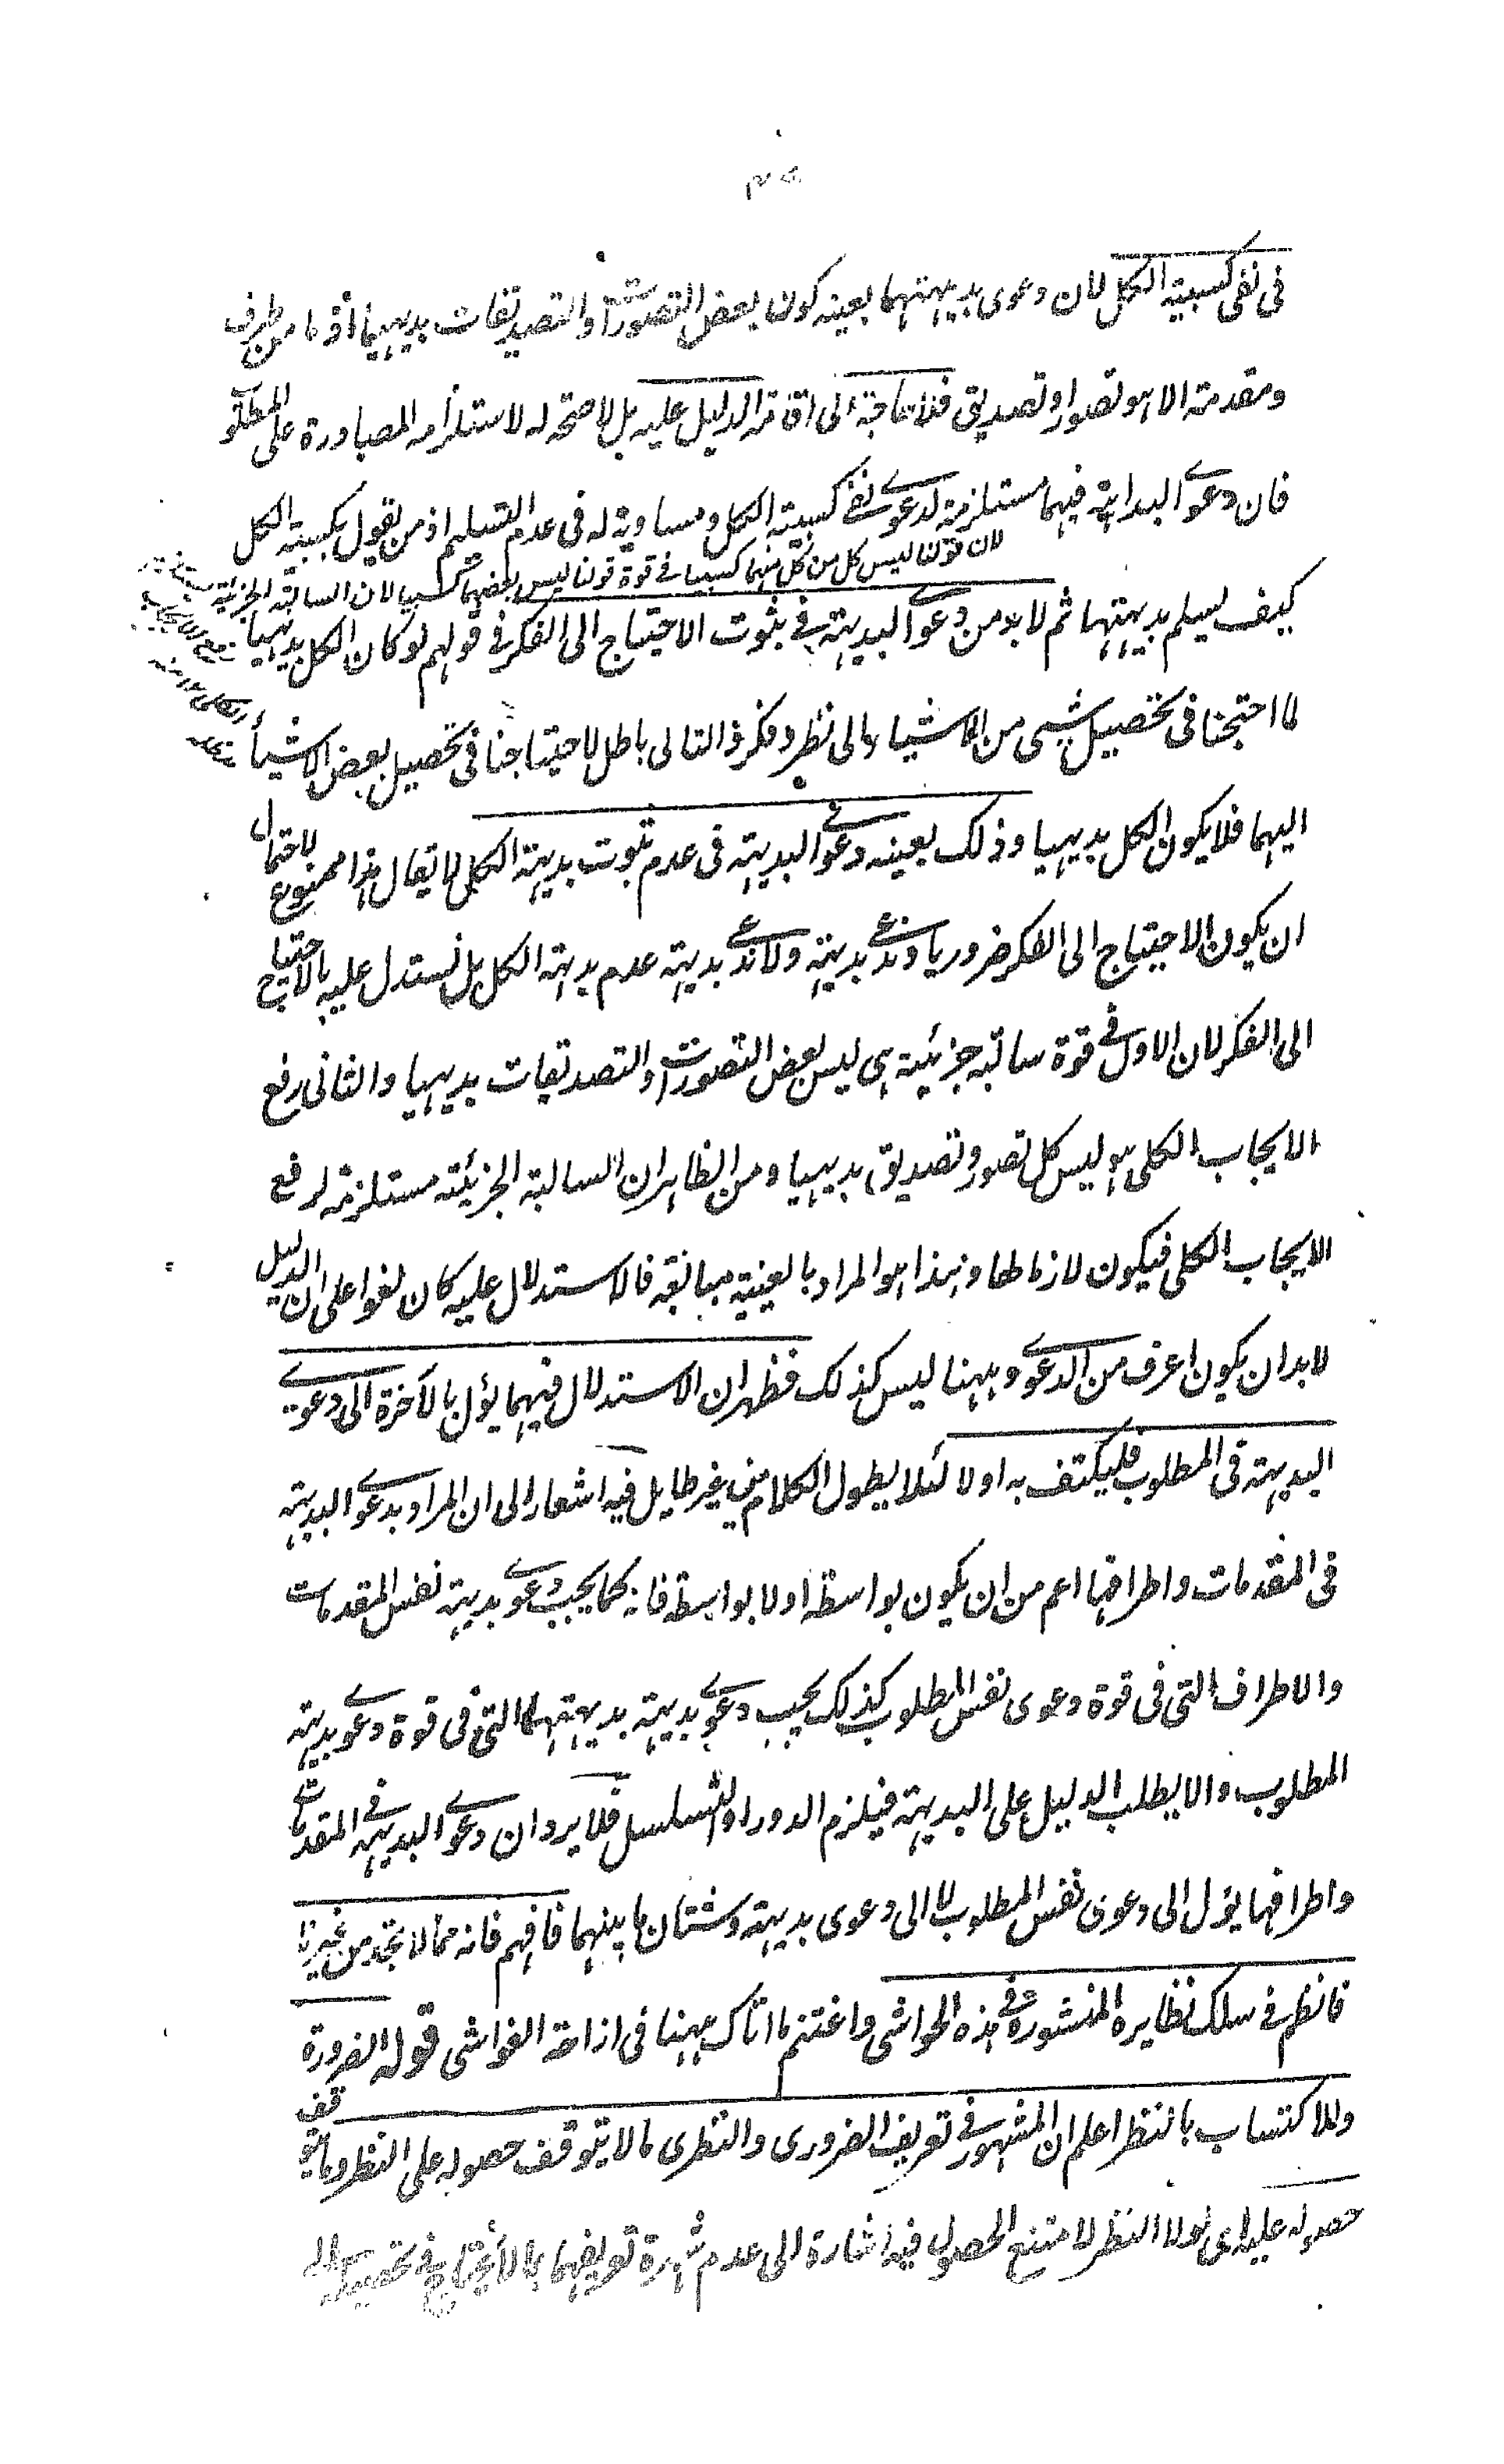 في نفى كسبية الكل لان دعوى بديهتهما بعينه كون بعض التصورات والتصديقات بديهيا اذ ما من طرف
ومقدمة الا هو تصور او تصديق فلا حاجة الى اقامة الدليل عليه بل لا صحة له لاستلزامه المصادرة على المطلوب
فان دعوى البداهة فيهما مستلزمة لدعوى نفى كسبية الكل ومساوية له فى عدم التسليم اذ من يقول بكسبية الكل
لان قولنا ليس كل من كل منهما كسبيا في قوة قولنا ليس بعضهما كسبيا لان السالبة الجزئية
كيف يسلم بديهتهما ثم لا بد من دعوى البديهة في ثبوت الاحتياج الى الفكر فى قولهم لو كان الكل بديهيا
لما احتجنا فى تحصيل شيء من الاشياء الى نظر وفكر والتالى باطل لاحتياجنا فى تحصيل بعض الاشياء
اليهما فلا يكون الكل بديهيا وذلك بعينه دعوى البديهة فى عدم ثبوت بديهة الكل لا يقال هذا ممنوع لاحتمال
ان يكون الاحتياج الى الفكر ضروريا وندعى بديهته ولا ندعى بديهة عدم بديهة الكل بل نستدل عليه بالاحتياج
الى الفكر لان الاول في قوة سالبة جزئية هى ليس بعض التصورات والتصديقات بديهيا والثانى رفع
الايجاب الكلى هو ليس كل تصور وتصديق بديهيا ومن الظاهر ان السالبة الجزئية مستلزمة لرفع
الايجاب الكلى فيكون لازما لها وهذا هو المراد بالعينية مبالغة فالاستدلال عليه كان لغوا على ان الدليل
لا بد ان يكون اعرف من الدعوى وههنا ليس كذلك فظهر ان الاستدلال فيهما يؤل بالآخرة الى دعوى
البديهة فى المطلوب فليكتف به اولا لئلا يطول الكلام من غير طايل فيه اشعار الى ان المراد بدعوى البديهة
فى المقدمات واطرافها اعم من ان يكون بواسطة اولا بواسطة فانه كما يجب دعوى بديهة نفس المقدمات
والاطراف التى فى قوة دعوى نفس المطلوب كذلك يجب دعوى بديهة بديهتهما التى فى قوة دعوى بديهة
المطلوب والا يطلب الدليل على البديهة فيلزم الدور او التسلسل فلا يرد ان دعوى البديهة في المقدمات
واطرافها يؤل الى دعوى نفس المطلوب لا الى دعوى بديهته وشتان ما بينهما فافهم فانه مما لا تجد من غيرنا
فانظم فى سلك نظايره المنشورة في هذه الحواشى واغتنم ما اتاك ههنا فى ازاحة الغواشى قوله الضرورة
وللاكتساب بالنظر اعلم ان المشهور في تعريف الضرورى والنظرى ما لا يتوقف حصوله على النظر وما يتوقف
حصوله عليه اى لولا النظر لامتنع الحصول فيه اشارة الى عدم شهرة تعريفهما بالاحتياج في تحصيله الى